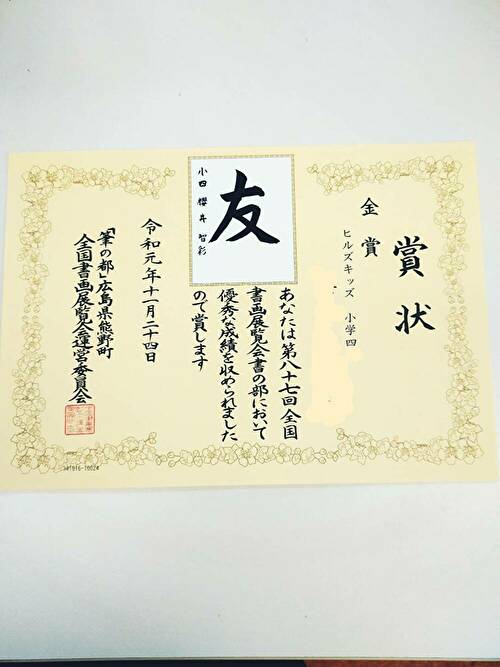 賞状
金賞
ヒルズキッズ 小学四
友
小四 櫻井智彩
あなたは第八十七回全国
書画展覧会書の部において
優秀な成績を収められました
ので賞します
令和元年十一月二十四日
「筆の都」広島県熊野町
全国書画展覧会運営委員会